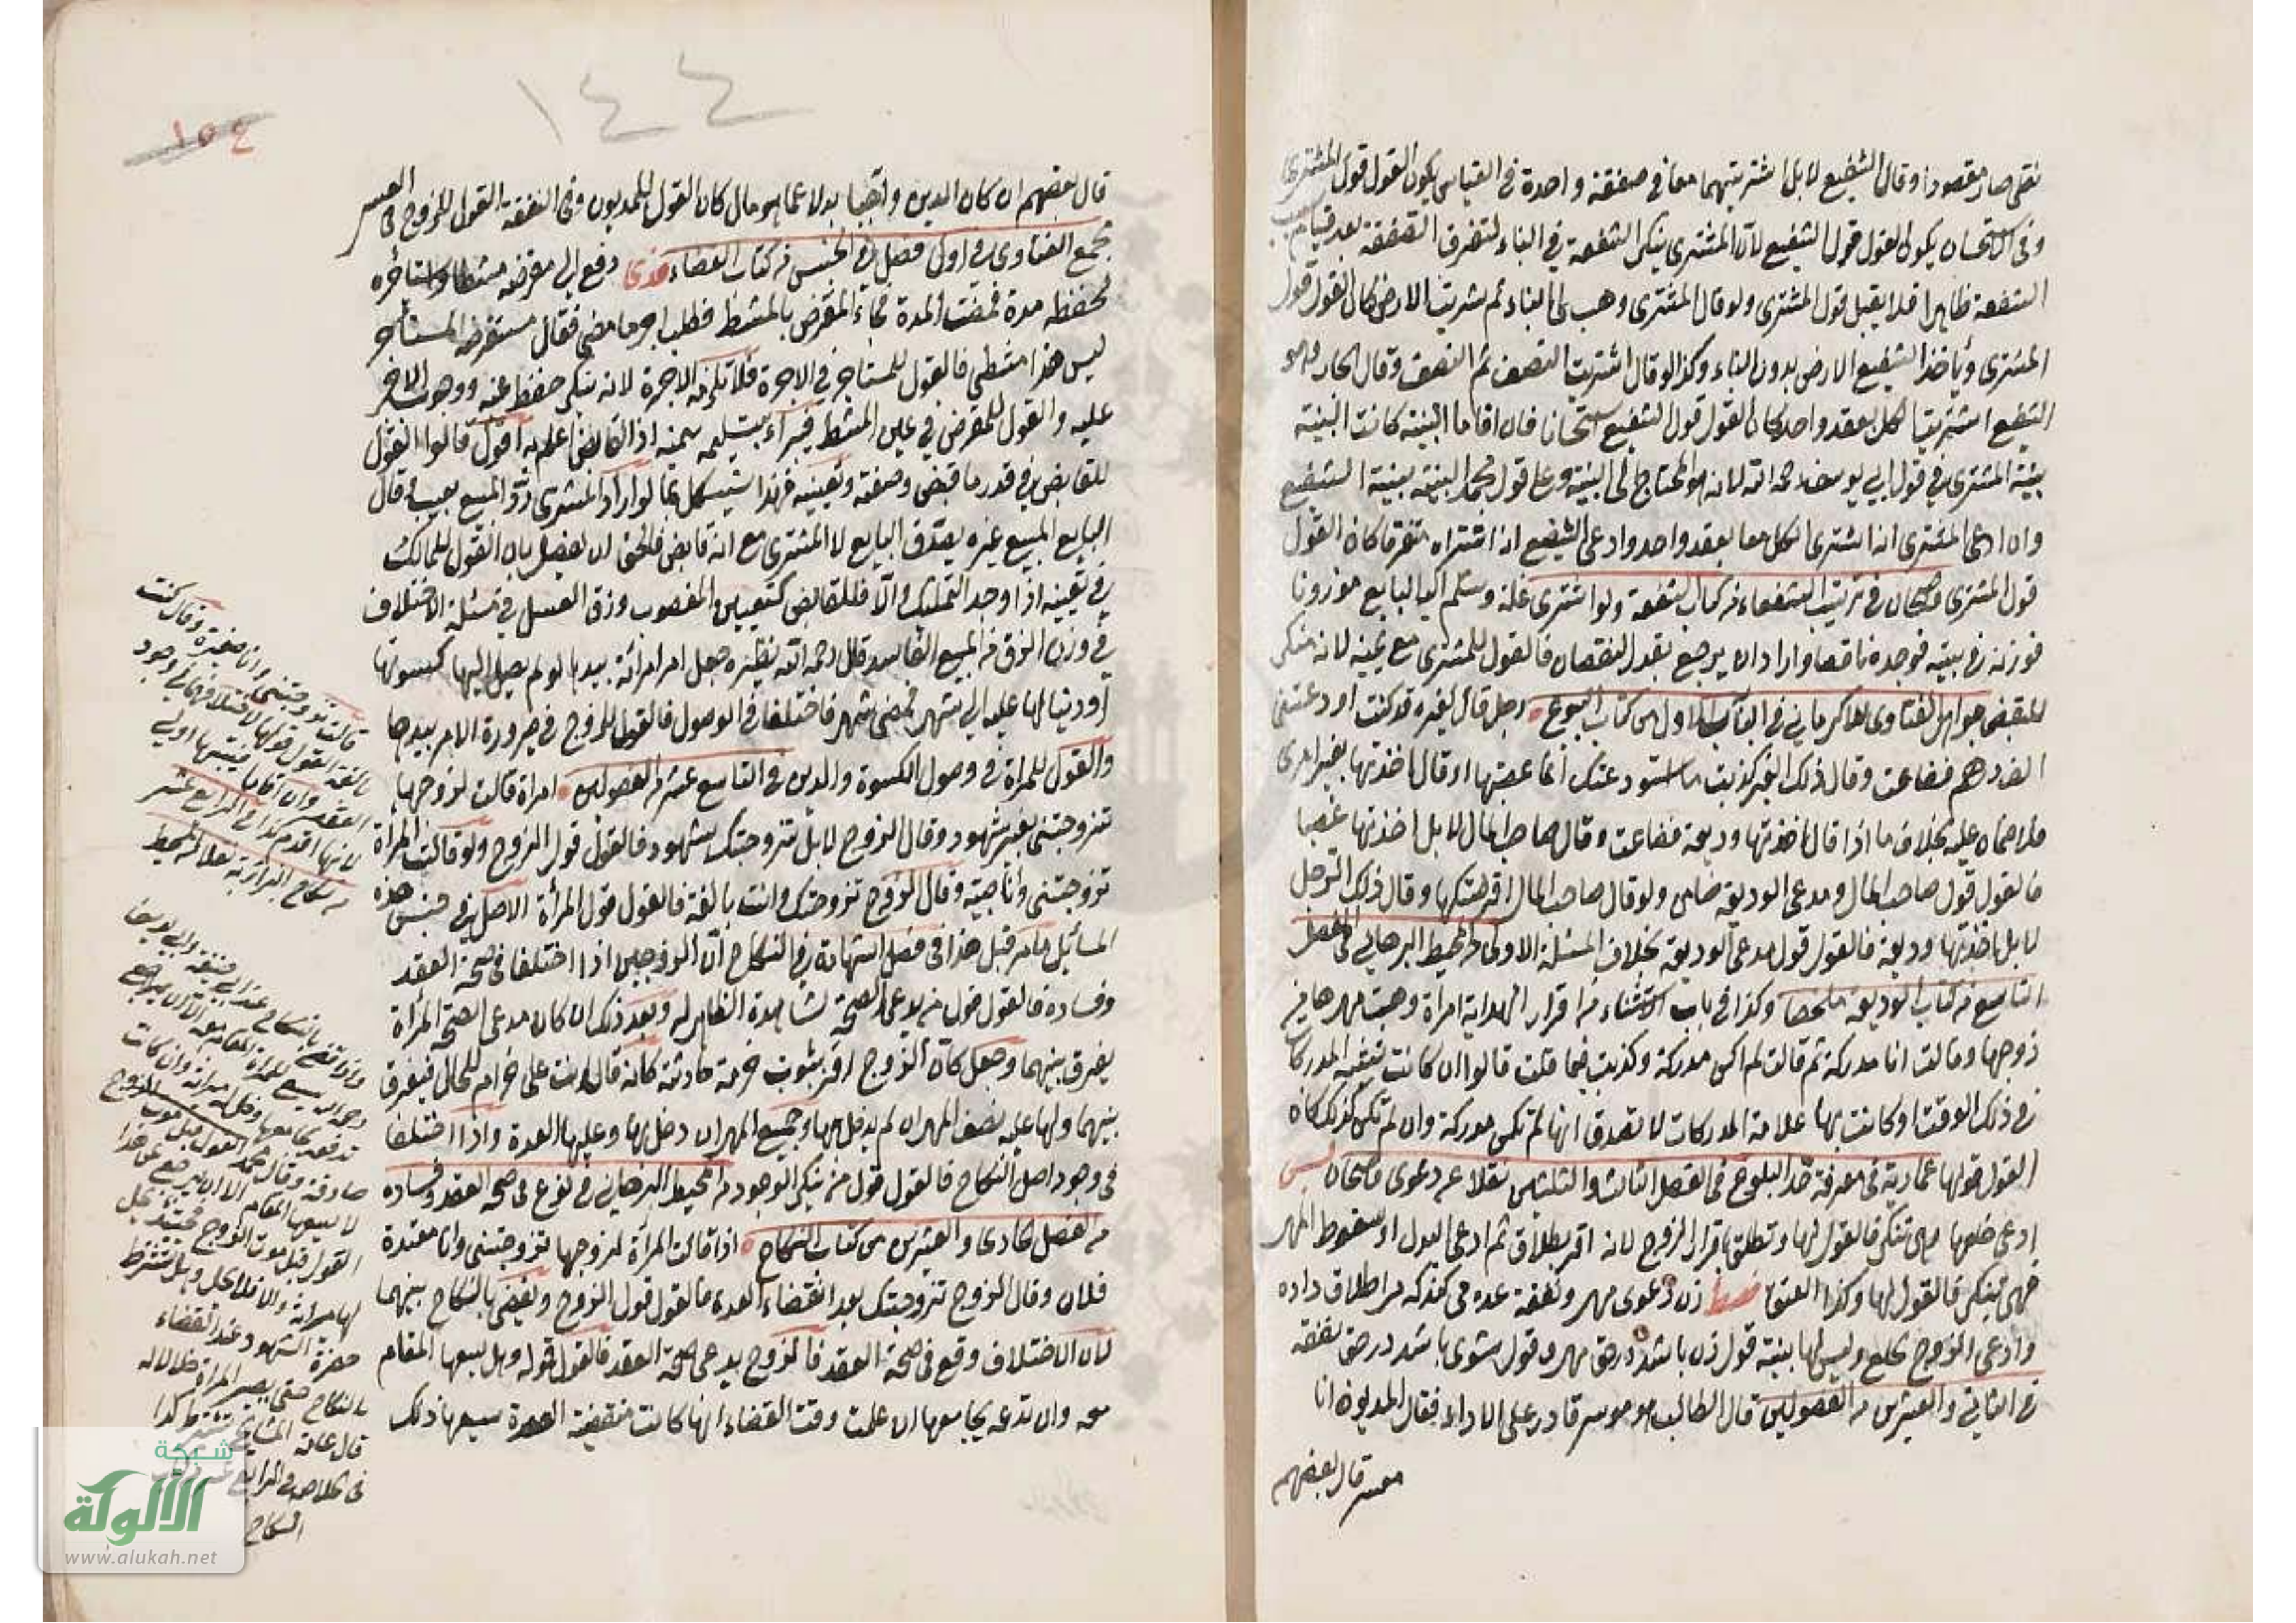 نقلى صار مقصودا وقال الشفيع لا بل اشتريتهما معا فى صفقة واحدة فى القياس يكون القول قول المشترى
وفى الاستحسان يكون القول قول الشفيع لان المشترى ينكر الشفعة فى البناء لتفرق الصفقة بعد قيام سبب
الشفعة ظاهرا فلا يقبل قول المشترى ولو قال المشترى وهب لى البناء ثم اشتريت الارض كان القول قول
المشترى ويأخذ الشفيع الارض بدون البناء وكذا لو قال اشتريت النصف ثم النصف وقال الجار وهو
الشفيع اشتريت الكل بعقد واحد كان القول قول الشفيع استحسانا فان اقاما البينة كانت البينة
بينة المشترى فى قول ابى يوسف رحمه الله لانه هو المحتاج الى البينة وعلى قول محمد البينة بينة الشفيع
وان ادعى المشترى انه اشترى الكل معا بعقد واحد وادعى الشفيع انه اشتراه متفرقا كان القول
قول المشترى قاضيخان فى ترتيب الشفعاء من كتاب الشفعة ولو اشترى غلة وسلم اليه البايع موزونا
فوزنه فى بيته فوجده ناقصا واراد ان يرجع بقدر النقصان فالقول للمشترى مع يمينه لانه منكر
للقبض جواهر الفتاوى للكرمانى فى الباب الاول من كتاب البيوع رجل قال لغيره قد كنت اودعتنى
الف درهم فضاعت وقال ذلك الغير كذبت ما استودعتك انما غصبتها او قال اخذتها بغير امرى
فلا ضمان عليه بخلاف ما اذا قال اخذتها وديعة فضاعت وقال صاحب المال لا بل اخذتها غصبا
فالقول قول صاحب المال ومدعى الوديعة ضامن ولو قال صاحب المال اقرضتكها وقال ذلك الرجل
لا بل اخذتها وديعة فالقول قول مدعى الوديعة بخلاف المسئلة الاولى المحيط البرهانى فى الفصل
التاسع من كتاب الوديعة ملخصا وكذا فى باب الاستثناء من اقرار الهداية امرأة وهبت مهرها من
زوجها وقالت انا مدركة ثم قالت لم اكن مدركة وكذبت فيما قلت قالوا ان كانت تشبه المدركات
فى ذلك الوقت او كانت بها علامة المدركات لا تصدق انها لم تكن مدركة وان لم تكن كذلك كان
القول قولها عمادية فى معرفة حد البلوغ فى الفصل الثالث والثلثين نقلا عن دعوى قاضيخان
ادعى خلعها وهى تنكر فالقول لها وتطلق باقرار الزوج لانه اقر بطلاق ثم ادعى البدل او سقوط المهر
فهى تنكر فالقول لها وكذا العتق زن دعوى مهر ونفقة عده مى كند كه مرا طلاق داده
وادعى الزوج الخلع وليس لها بينة قول زن باشد در حق مهر وقول شوى باشد در حق نفقه
فى الثانى والعشرين من الفصولين قال الطالب هو موسر قادر على الاداء فقال المديون انا
معسر قال بعضهم
١٤٤
١٥٤
قال بعضهم ان كان الدين واجبا بدلا عما هو مال كان القول للمديون وفى النفقة القول للزوج فى العسر
مجمع الفتاوى فى اول فصل فى الحبس من كتاب القضاء دفع الى مقرضه مشطا واستأجره
لحفظه مدة فمضت المدة فجاء المقرض بالمشط فطلب اجر ما مضى فقال مستقرضه المستأجر
ليس هذا مشطى فالقول للمستأجر فى الاجرة فلا تلزمه الاجرة لانه ينكر حفظ عينه ووجوب الاجر
عليه والقول للمقرض فى عين المشط فيبرأ بتسليمه بيمينه اذ القابض اعلم به اقول قالوا القول
للقابض فى قدر ما قبض وصفته وتعيينه فهذا يشكل بما لو اراد المشترى رد المبيع بعيب فقال
البايع المبيع غيره يصدق البايع لا المشترى مع انه قابض فالحق ان يفصل بان القول للمالك
فى تعيينه اذا وجد التمليك والا فللقابض كتعيين المغصوب وزق العسل فى مسئلة الاختلاف
فى وزن الزق من المبيع الفاسد قال رحمه الله نظيره جعل امر امرأته بيدها لو لم يصل اليها كسوتها
او دينا لها عليه الى شهر فمضى شهر فاختلفا فى الوصول فالقول للزوج فى صيرورة الامر بيدها
والقول للمرأة فى وصول الكسوة والدين فى التاسع عشر من الفصولين امرأة قالت لزوجها
تزوجتنى بغير شهود وقال الزوج لا بل تزوجتك بشهود فالقول قول الزوج ولو قالت المرأة
تزوجتنى وانا صبية وقال الزوج تزوجتك وانت بالغة فالقول قول المرأة الاصل فى جنس هذه
المسائل ما مر قبل هذا فى فصل الشهادة فى النكاح ان الزوجين اذا اختلفا فى صحة العقد
وفساده فالقول قول من يدعى الصحة لشاهدة الظاهر له وبعد ذلك ان كان مدعى الصحة المرأة
يفرق بينهما وجعل كان الزوج اقر بثبوت حرمة حادثة كانه قال انت على حرام للحال فيفرق
بينهما ولها عليه نصف المهر ان لم يدخل بها وجميع المهر ان دخل بها وعليها العدة واذا اختلفا
فى وجود اصل النكاح فالقول قول من ينكر الوجود من المحيط البرهانى فى نوع فى صحة العقد وفساده
من الفصل الحادى والعشرين من كتاب النكاح اذا قالت المرأة لزوجها تزوجتنى وانا معتدة
فلان وقال الزوج تزوجتك بعد انقضاء العدة فالقول قول الزوج ويقضى بالنكاح بينهما
لان الاختلاف وقع فى صحة العقد فالزوج يدعى صحة العقد فالقول قوله وهل يسعها المقام
معه وان تدعه يجامعها ان علمت وقت القضاء انها كانت منقضية العدة يسعها ذلك
قالت تزوجتنى وانا صغيرة وقال كنت
بالغة القول قولها لاختلافهما فى وجود
العقد وان اقاما فبينتها اولى
لانها اقدم فى الرابع عشر
من نكاح البزازية نقلا من المحيط
واذا قضى بالنكاح عند ابى حنيفة وابى يوسف
صادقة وقال محمد
لا يسعها المقام
القول قبل موت الزوج
لها ميراثه والا فلا يحل وهل يشترط
حضرة الشهود عند القضاء
بالنكاح حتى يصير المرأة حلالا له
قال عامة المشايخ يشترط كذا
فى الخلاصة فى الرابع عشر
النكاح
شبكة
الألوكة
www.alukah.net